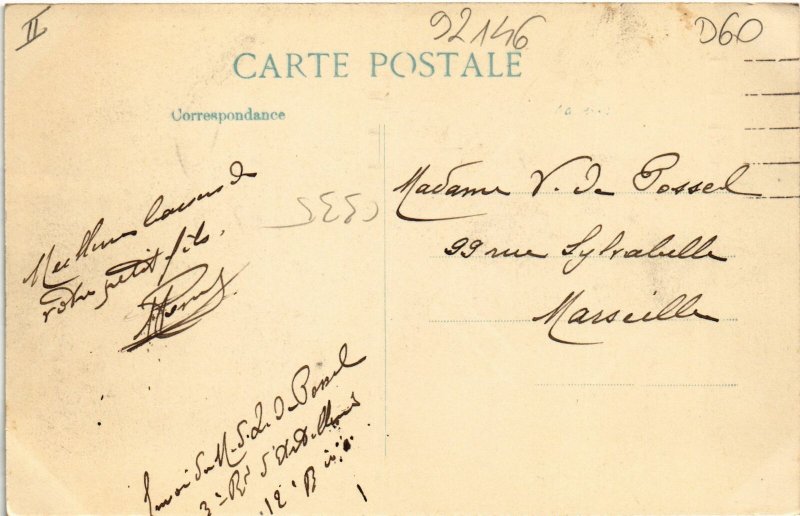 II
92146
D60
CARTE POSTALE
Correspondance
Meilleurs baisers de
votre petit fils.
5335
Madame V. de Possel
99 rue Sylvabelle
Marseille
Envoi du M. d. L. de Possel
3e Rgt d'Artillerie
12e Bie